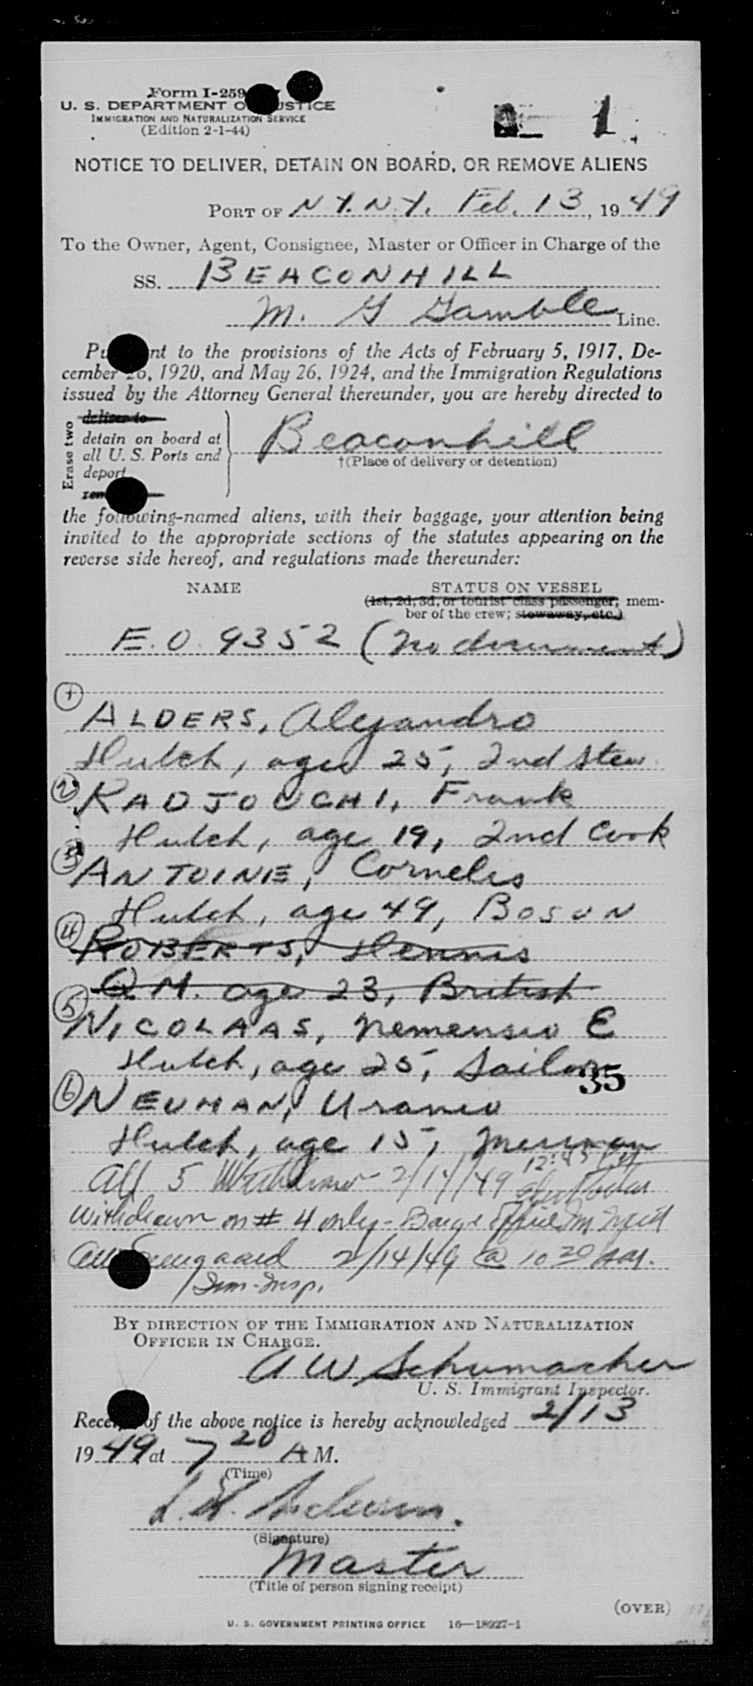 Form I-259
U. S. DEPARTMENT OF JUSTICE
IMMIGRATION AND NATURALIZATION SERVICE
(Edition 2-1-44)
1
NOTICE TO DELIVER, DETAIN ON BOARD, OR REMOVE ALIENS
PORT OF N.Y. N.Y. Feb. 13, 1949
To the Owner, Agent, Consignee, Master or Officer in Charge of the
SS. BEACONHILL
M. G Gamble Line.
Pursuant to the provisions of the Acts of February 5, 1917, De-
cember 26, 1920, and May 26, 1924, and the Immigration Regulations
issued by the Attorney General thereunder, you are hereby directed to
Erase two
deliver to
detain on board at
all U. S. Ports and
deport
Beaconhill
†(Place of delivery or detention)
the following-named aliens, with their baggage, your attention being
invited to the appropriate sections of the statutes appearing on the
reverse side hereof, and regulations made thereunder:
NAME STATUS ON VESSEL
(1st, 2d, 3d, or tourist class passenger, mem-
ber of the crew; stowaway, etc.)
E.O. 9352 (no document)
(1) ALDERS, Alejandro
Dutch, age 25, 2nd Stew.
(2) RADJOUCHI, Frank
Dutch, age 19, 2nd Cook
(3) ANTOINIE, Cornelis
Dutch, age 49, BOSUN
(4) ROBERTS, Dennis
Q.M. age 23, British
(5) NICOLAAS, Nemensio E
Dutch, age 25, Sailor
35
(6) NEUMAN, Uranio
Dutch, age 15, Messman
All 5 Withdrawn 2/14/49 12:45 PM
Withdrawn on # 4 only - Barge Office
2/14/49 @ 10 20 AM.
Imm. Insp.
BY DIRECTION OF THE IMMIGRATION AND NATURALIZATION
OFFICER IN CHARGE.
A W Schumacher
U. S. Immigrant Inspector.
Receipt of the above notice is hereby acknowledged 2/13
1949 at 7 20 A M.
(Time)
(Signature)
Master
(Title of person signing receipt)
(OVER)
U. S. GOVERNMENT PRINTING OFFICE 16—18927-1